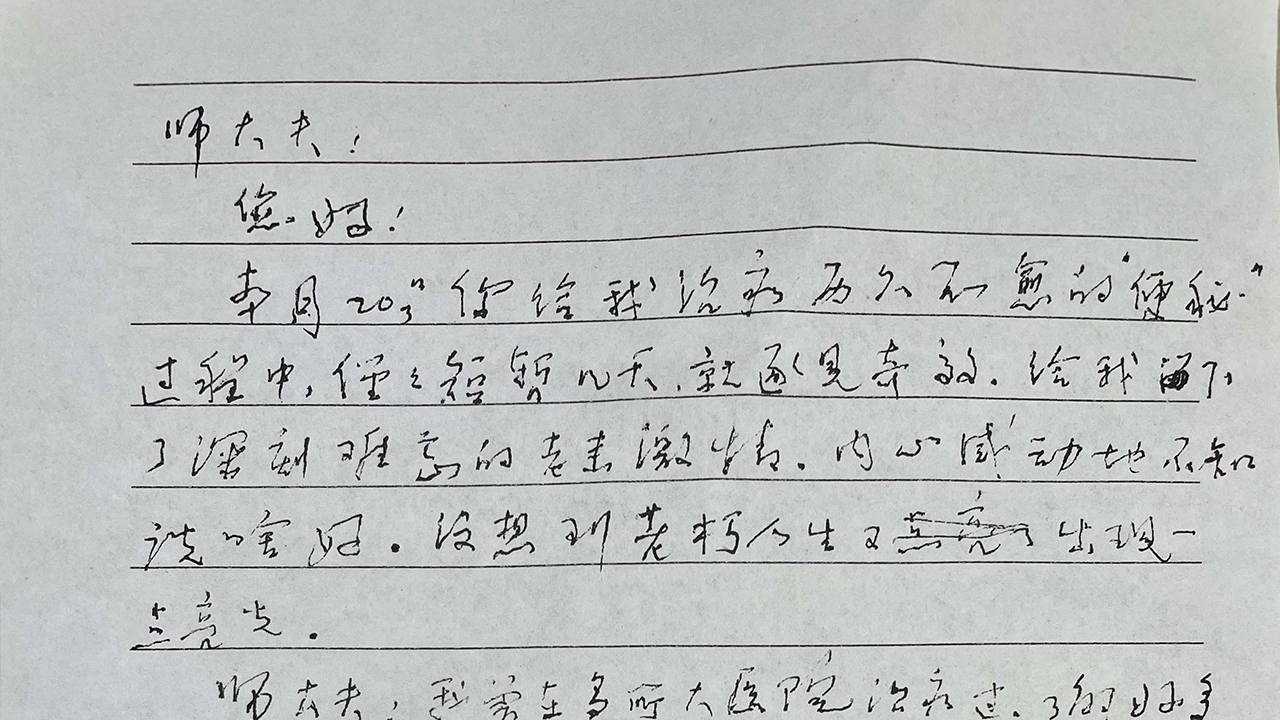 师大夫！
您好！
本月20号你给我治疗历久不愈的“便秘”
过程中，仅仅短暂几天，就逐见奇效。给我留下
了深刻难忘的老来激情。内心感动地不知
说啥好。没想到老朽人生又点亮了出现一
点亮光。
师大夫：我曾在多所大医院治疗过。了解好多